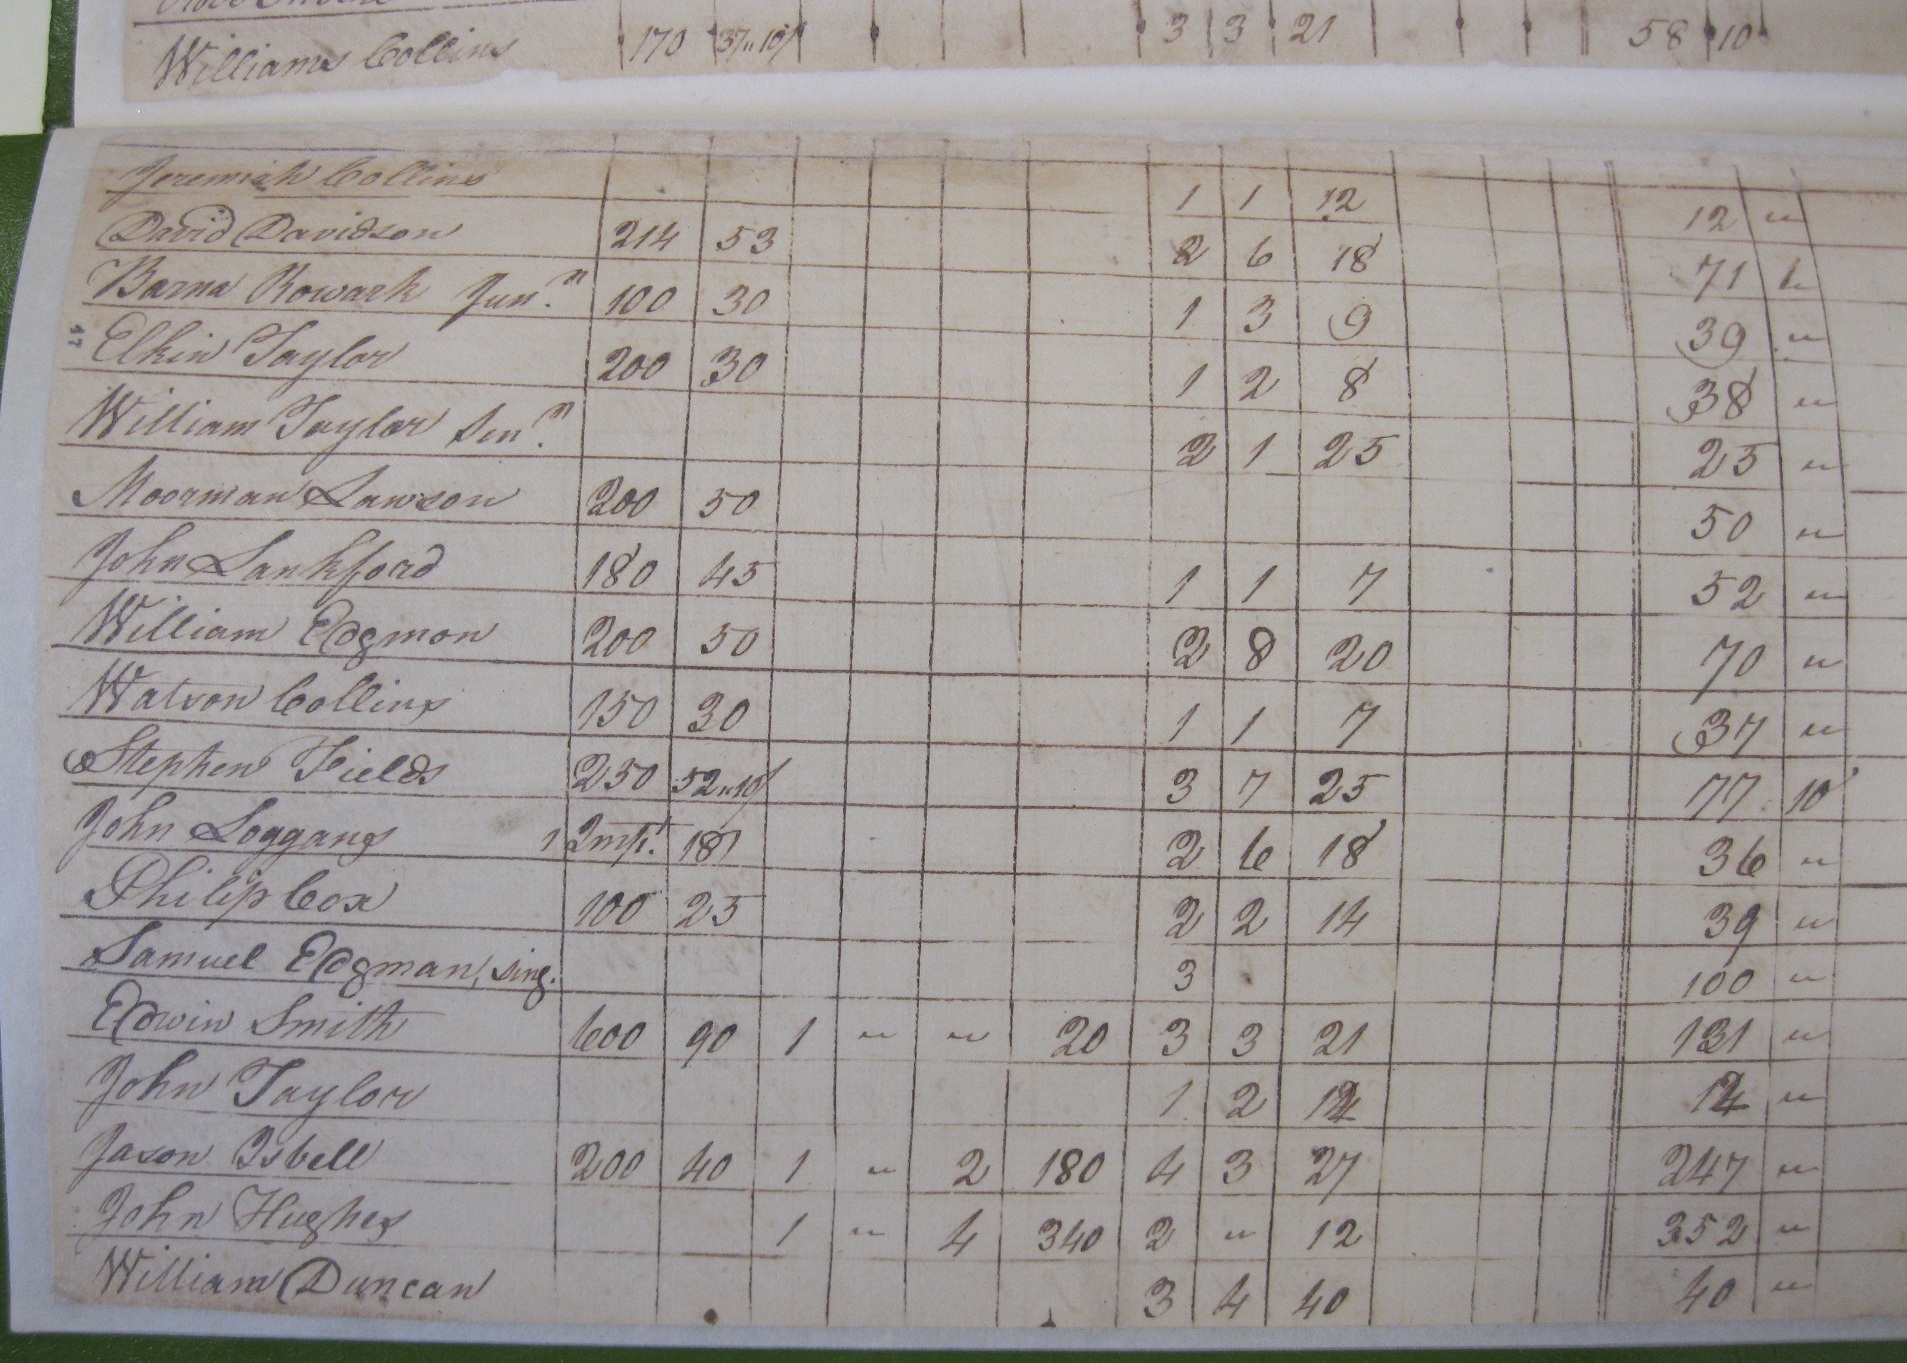 Williams Collins 170 37"10/ 3 3 21 58 10
Jeremiah Collins 1 1 12 12 "
David Davidson 214 53 2 6 18 71 "
Barna Rowark Jun.r 100 30 1 3 9 39 "
47
Elkin Taylor 200 30 1 2 8 38 "
William Taylor Sen.r 2 1 25 25 "
Moorman Lawson 200 50 50 "
John Lankford 180 45 1 1 7 52 "
William Edgmon 200 50 2 8 20 70 "
Watson Collins 150 30 1 1 7 37 "
Stephen Fields 250 52"10/ 3 7 25 77 10
John Loggans 1 2mpt. 18 2 6 18 36 "
Philip Cox 100 25 2 2 14 39 "
Samuel Edgman, sing. 3 100 "
Edwin Smith 600 90 1 " " 20 3 3 21 131 "
John Taylor 1 2
Jason Isbell 200 40 1 " 2 180 4 3 27 247 "
John Hughes 1 " 4 340 2 " 12 352 "
William Duncan 3 4 40 40 "